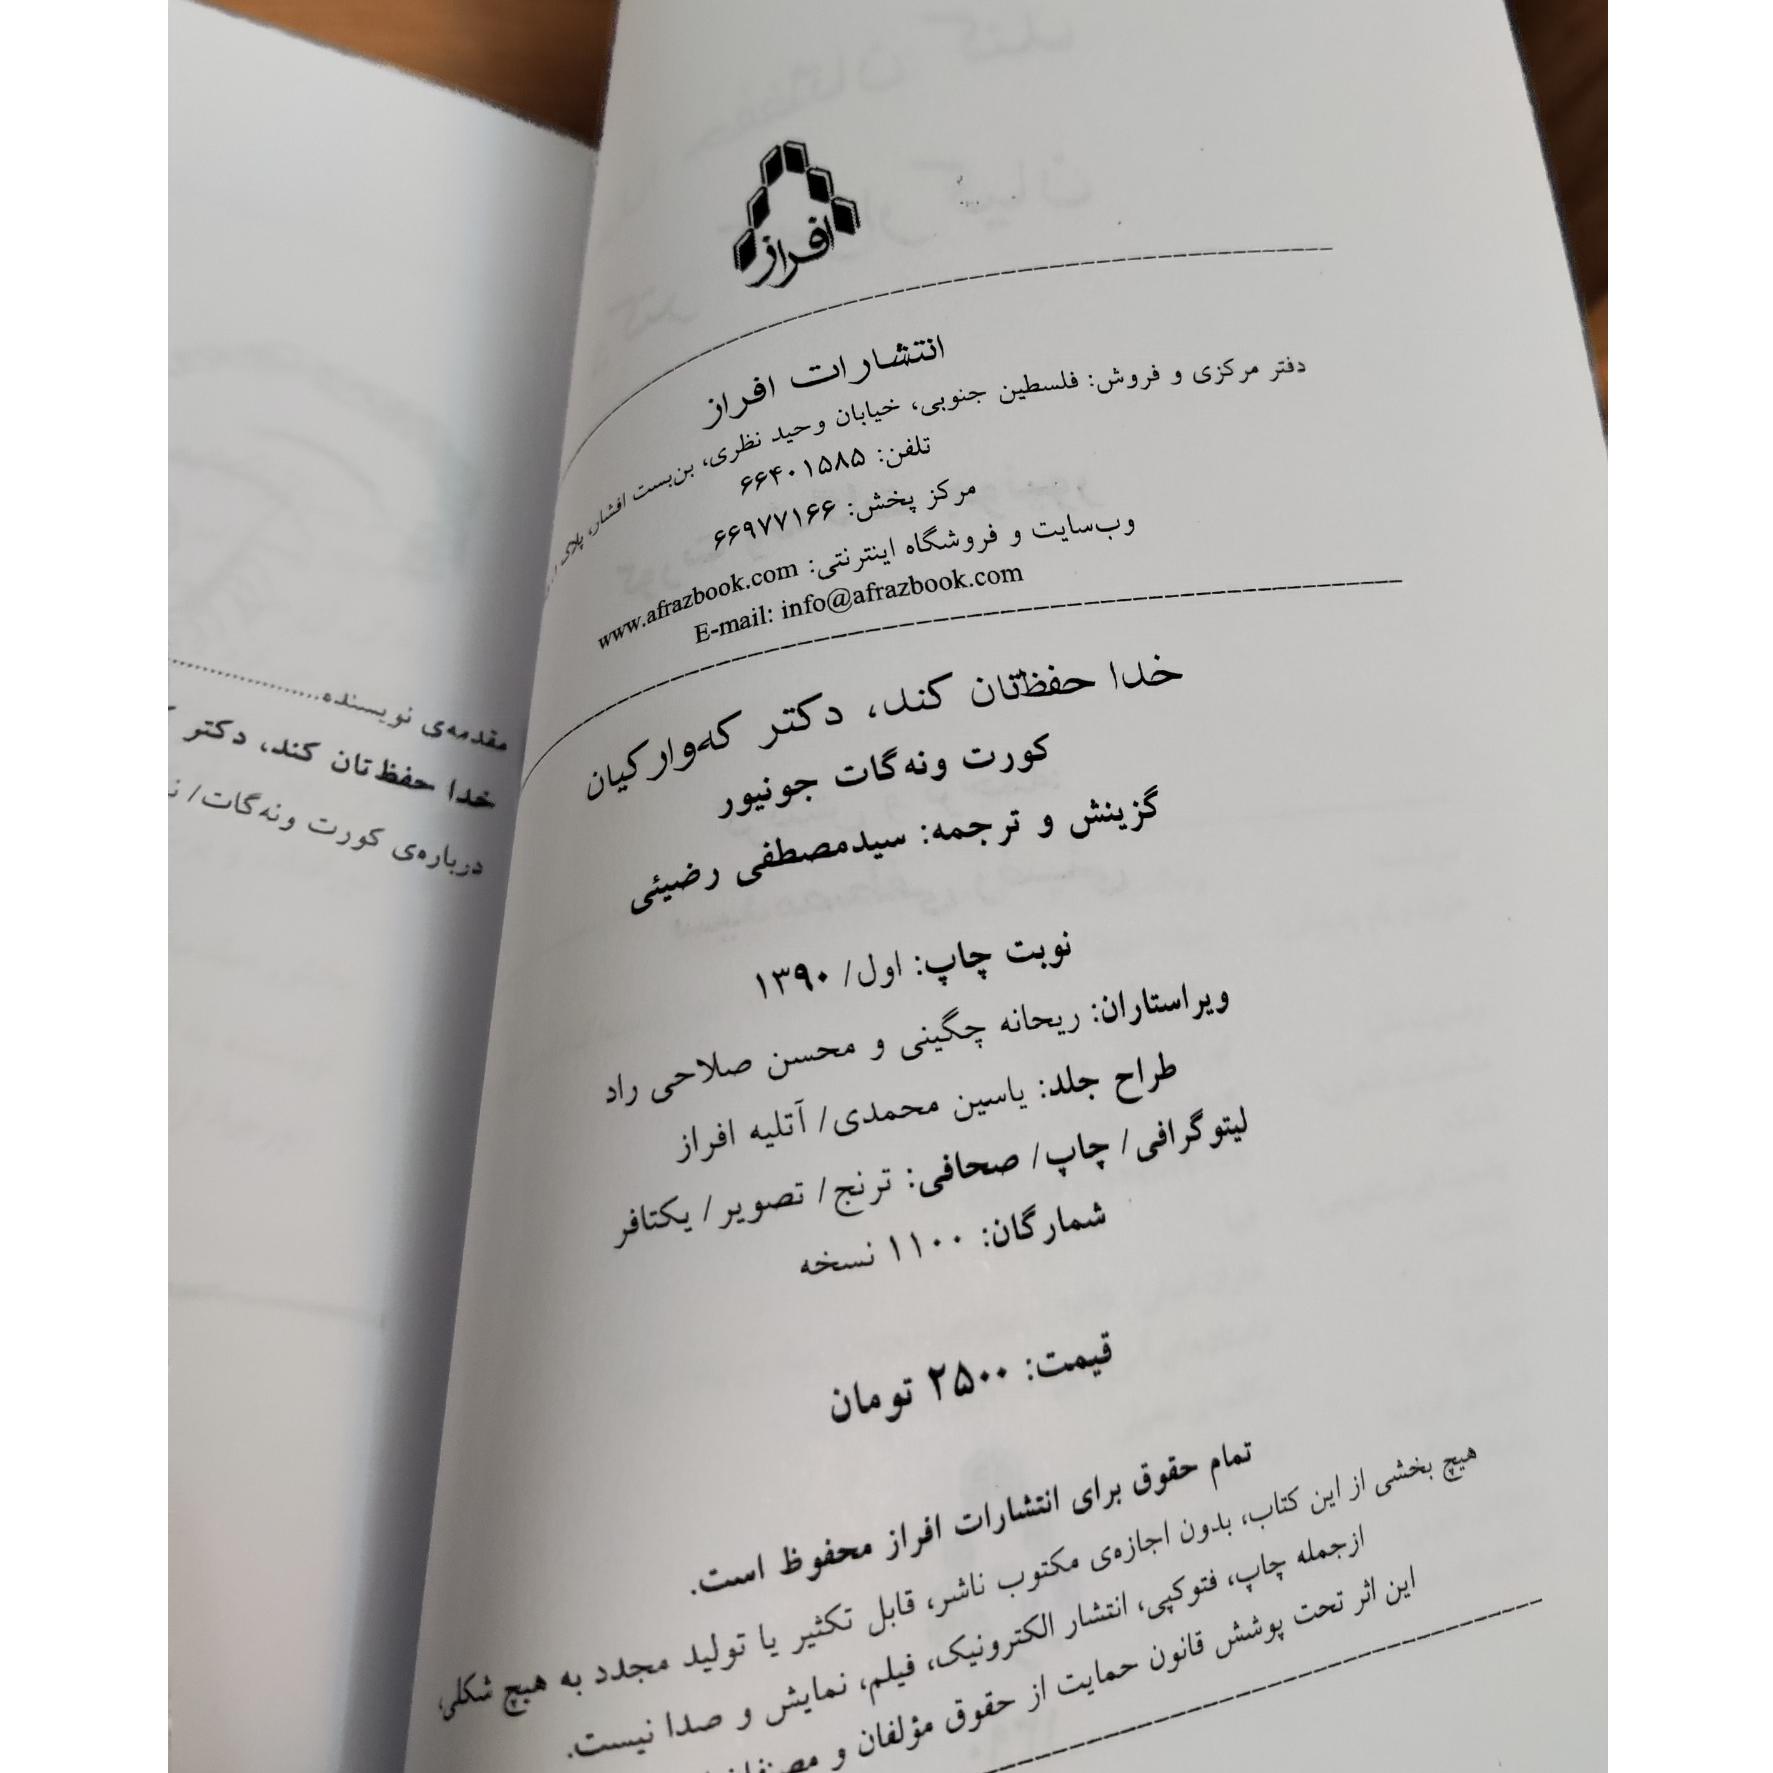 افراز
انتشارات افراز
دفتر مرکزی و فروش: فلسطین جنوبی، خیابان وحید نظری، بن‌بست افشار، پلاک
تلفن: ۶۶۴۰۱۵۸۵
مرکز پخش: ۶۶۹۷۷۱۶۶
وب‌سایت و فروشگاه اینترنتی: www.afrazbook.com
E-mail: info@afrazbook.com
خدا حفظ‌تان کند، دکتر که‌وارکیان
کورت ونه‌گات جونیور
گزینش و ترجمه: سیدمصطفی رضیئی
نوبت چاپ: اول/ ۱۳۹۰
ویراستاران: ریحانه چگینی و محسن صلاحی راد
طراح جلد: یاسین محمدی/ آتلیه افراز
لیتوگرافی/ چاپ/ صحافی: ترنج/ تصویر/ یکتافر
شمارگان: ۱۱۰۰ نسخه
قیمت: ۲۵۰۰ تومان
تمام حقوق برای انتشارات افراز محفوظ است.
هیچ بخشی از این کتاب، بدون اجازه‌ی مکتوب ناشر، قابل تکثیر یا تولید مجدد به هیچ شکلی،
ازجمله چاپ، فتوکپی، انتشار الکترونیک، فیلم، نمایش و صدا نیست.
این اثر تحت پوشش قانون حمایت از حقوق مؤلفان و
مقدمه‌ی نویسنده
خدا حفظ‌تان کند، دکتر
درباره‌ی کورت ونه‌گات/